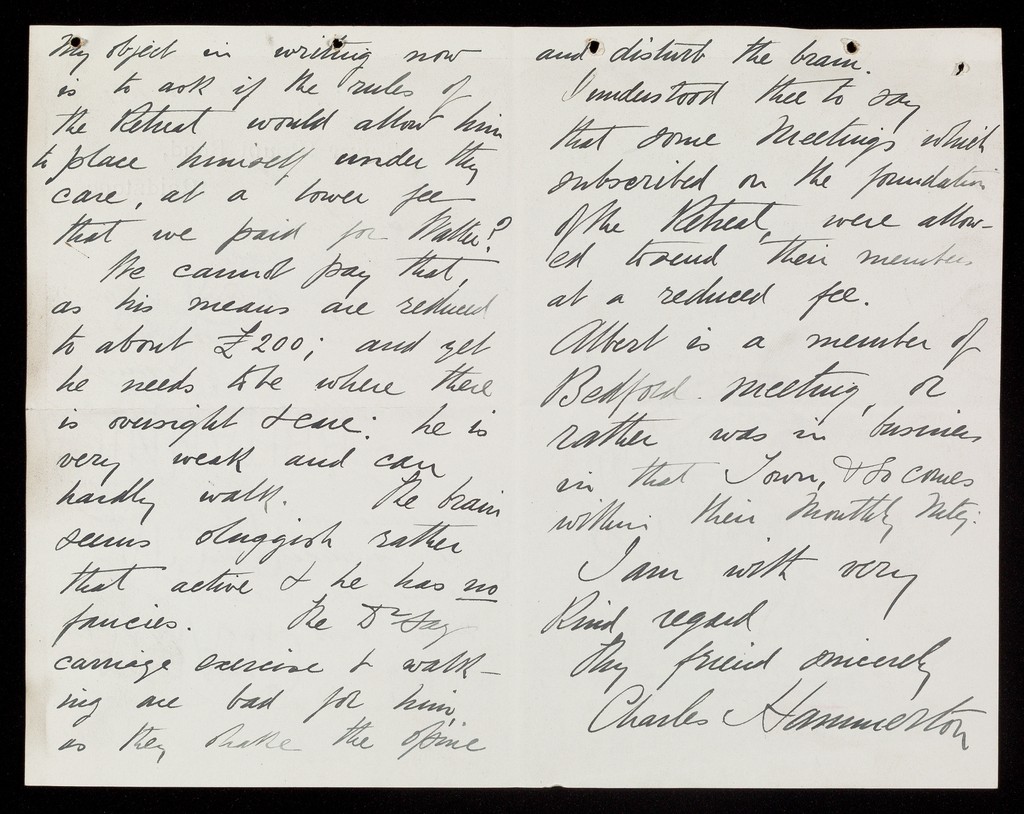 My object in writing now
is to ask if the rules of
the Retreat would allow him
to place himself under thy
care, at a lower fee
that we paid for Walter?
We cannot pay that,
as his means are reduced
to about £200; and yet
he needs to be where there
is oversight & care: he is
very weak and can
hardly walk. The brain
seems sluggish rather
that active & he has no
fancies. The Dr say
carriage exercise & walk-
ing are bad for him,
as they shake the spine
and disturb the brain.
I understood thee to say
that some Meetings which
subscribed on the foundation
of the Retreat, were allow-
ed to send their members
at a reduced fee.
Albert is a member of
Bedford meeting, or
rather was in business
in that Town, & so comes
within their Monthly Mtg.
I am with very
kind regard
Thy friend sincerely
Charles Hammerton